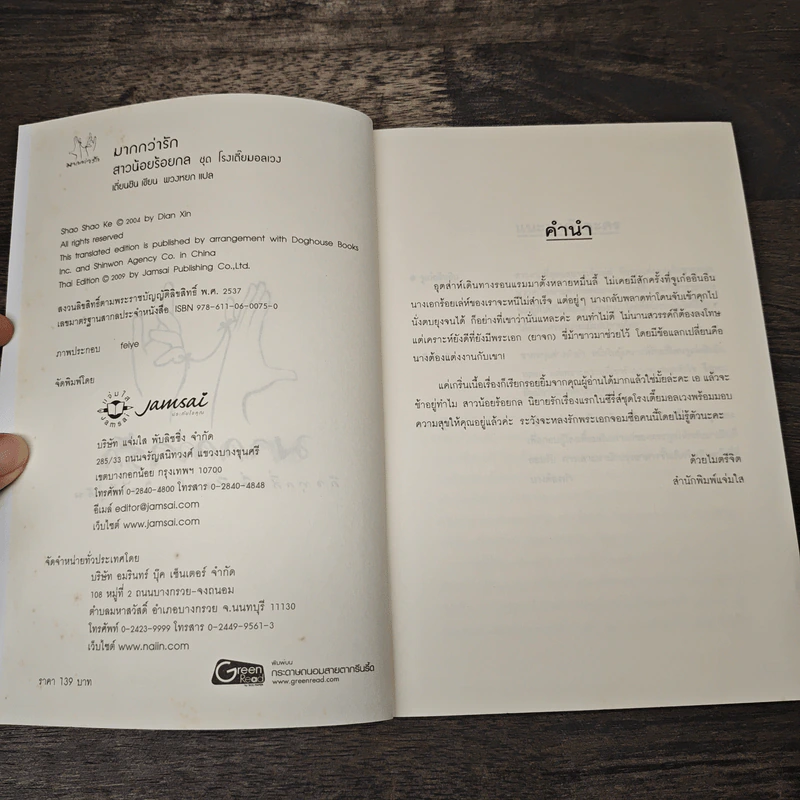 มากกว่ารัก
มากกว่ารัก
สาวน้อยร้อยกล ชุด โรงเตี๊ยมอลเวง
เตี่ยนซิน เขียน พวงหยก แปล
Shao Shao Ke © 2004 by Dian Xin
All rights reserved
This translated edition is published by arrangement with Doghouse Books
Inc. and Shinwon Agency Co. in China
Thai Edition © 2009 by Jamsai Publishing Co.,Ltd.
สงวนลิขสิทธิ์ตามพระราชบัญญัติลิขสิทธิ์ พ.ศ. 2537
เลขมาตรฐานสากลประจำหนังสือ ISBN 978-611-06-0075-0
ภาพประกอบ feiye
จัดพิมพ์โดย
แจ่มใส
jamsai
jamsai
บริษัท แจ่มใส พับลิชชิ่ง จำกัด
285/33 ถนนจรัญสนิทวงศ์ แขวงบางขุนศรี
เขตบางกอกน้อย กรุงเทพฯ 10700
โทรศัพท์ 0-2840-4800 โทรสาร 0-2840-4848
อีเมล์ editor@jamsai.com
เว็บไซต์ www.jamsai.com
จัดจำหน่ายทั่วประเทศโดย
บริษัท อมรินทร์ บุ๊ค เซ็นเตอร์ จำกัด
108 หมู่ที่ 2 ถนนบางกรวย-จงถนอม
ตำบลมหาสวัสดิ์ อำเภอบางกรวย จ.นนทบุรี 11130
โทรศัพท์ 0-2423-9999 โทรสาร 0-2449-9561-3
เว็บไซต์ www.naiin.com
ราคา 139 บาท
Green Read
พิมพ์บน
กระดาษถนอมสายตากรีนรี้ด
www.greenread.com
คำนำ
อุตส่าห์เดินทางรอนแรมมาตั้งหลายหมื่นลี้ ไม่เคยมีสักครั้งที่จูเก๋ออินอิน
นางเอกร้อยเล่ห์ของเราจะหนีไม่สำเร็จ แต่อยู่ๆ นางกลับพลาดท่าโดนจับเข้าคุกไป
นั่งตบยุงจนได้ ก็อย่างที่เขาว่านั่นแหละค่ะ คนทำไม่ดี ไม่นานสวรรค์ก็ต้องลงโทษ
แต่เคราะห์ยังดีที่ยังมีพระเอก (ยาจก) ขี่ม้าขาวมาช่วยไว้ โดยมีข้อแลกเปลี่ยนคือ
นางต้องแต่งงานกับเขา!
แค่เกริ่นเนื้อเรื่องก็เรียกรอยยิ้มจากคุณผู้อ่านได้มากแล้วใช่มั้ยล่ะคะ เอ แล้วจะ
ช้าอยู่ทำไม สาวน้อยร้อยกล นิยายรักเรื่องแรกในซีรี่ส์ชุดโรงเตี๊ยมอลเวงพร้อมมอบ
ความสุขให้คุณอยู่แล้วค่ะ ระวังจะหลงรักพระเอกจอมซื่อคนนี้โดยไม่รู้ตัวนะคะ
ด้วยไมตรีจิต
สำนักพิมพ์แจ่มใส